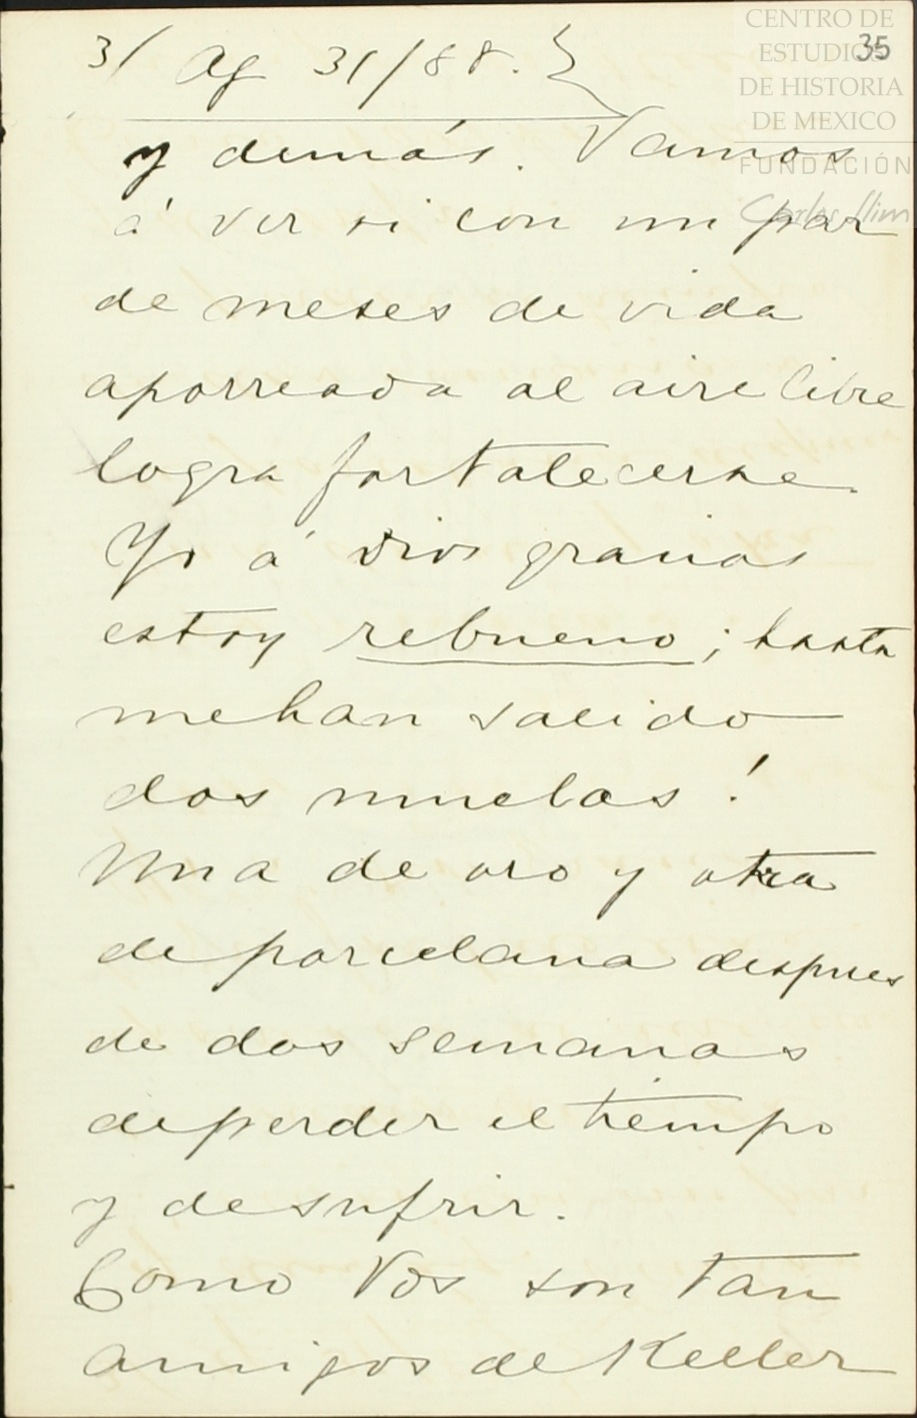 CENTRO DE
ESTUDIOS
DE HISTORIA
DE MEXICO
FUNDACIÓN
Carlos Slim
35
3/ Ag 31/88.
y demás. Vamos
á ver si con un par
de meses de vida
aporreada al aire libre
logra fortalecerse.
Yo á Dios gracias
estoy rebueno; hasta
me han salido
dos muelas!
Una de oro y otra
de porcelana despues
de dos semanas
de perder el tiempo
y de sufrir.
Como Vds son tan
amigos de Keller